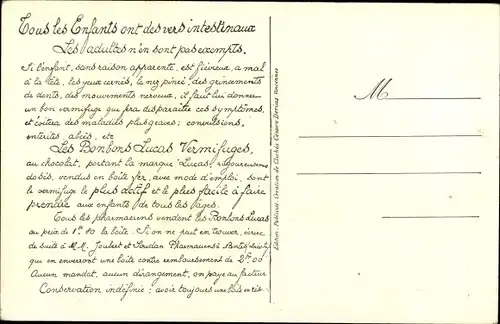 Tous les Enfants ont des vers intestinaux
Les adultes n'en sont pas exempts.
Si l'enfant, sans raison apparente, est fiévreux, a mal
à la tête, les yeux cernés, le nez pincé, des grincements
de dents, des mouvements nerveux, il faut lui donner
un bon vermifuge qui fera disparaître ces symptômes,
et évitera des maladies plus graves: convulsions,
entérites, abcès, etc
Les Bonbons Lucas Vermifuges,
au chocolat, portant la marque "Lucas", rigoureusement
dosés, vendus en boîte fer, avec mode d'emploi, sont
le vermifuge le plus actif et le plus facile à faire
prendre aux enfants de tous les âges.
Tous les pharmaciens vendent les Bonbons Lucas
au prix de la boîte. Si on ne peut en trouver, écrire
de suite à M.M. Joubert et Soudan Pharmaciens à
qui en enverront une boîte contre remboursement de 2fr.00
Aucun mandat, aucun dérangement, on paye au facteur
Conservation indéfinie: avoir toujours une boîte en
M
Edition Publicité. Création de Clichés César Vincennes